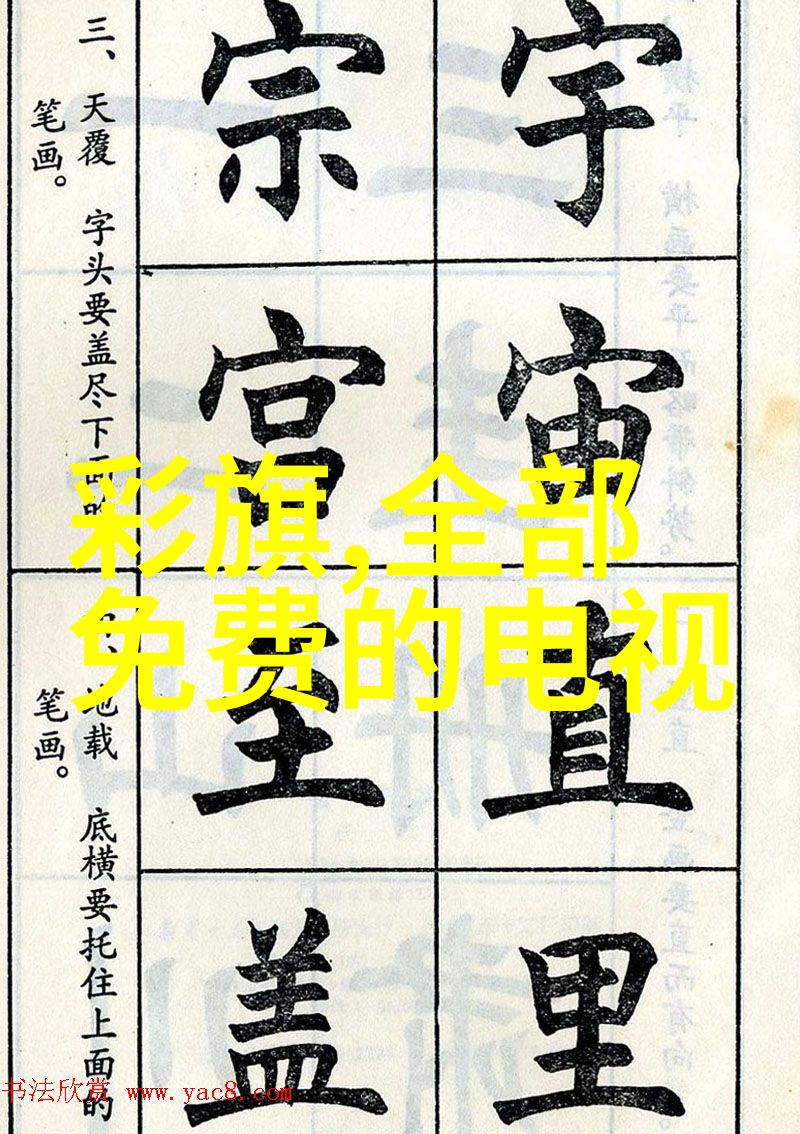 宇宙直里
宗宫至盖
三、天覆 字头要盖尽下面的
笔画。
、地载 底横要托住上面的
笔画。
彩旗,全部
免费的电视
书法欣赏 www.yac8.com